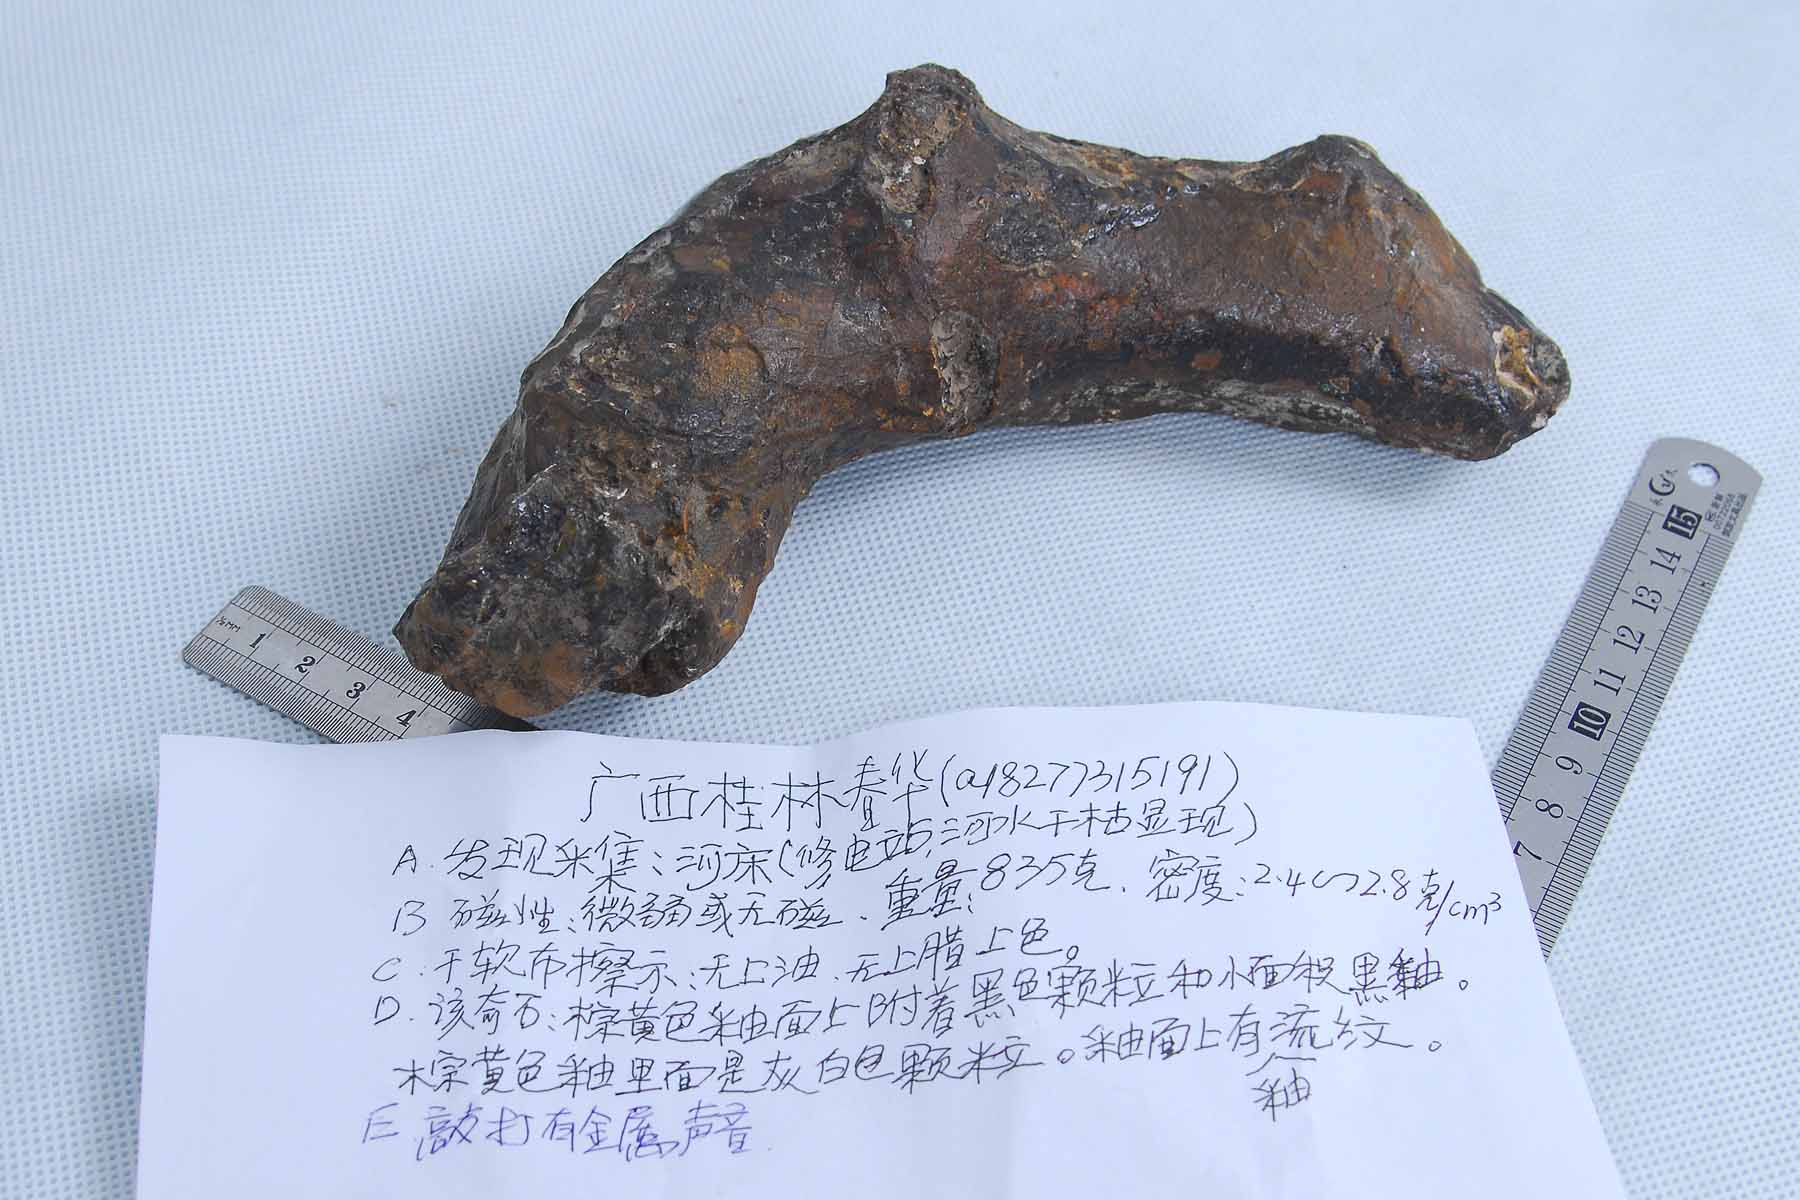 ½MM 1 2 3 4
15 14 13 12 11 10 9 8 7
广西桂林春华(a18277315191)
A.发现采集:河床(修电站,河水干枯显现)
B 磁性:微弱或无磁、重量:835克、密度:2.4~2.8克/cm³
C.干软布擦示:无上油、无上腊上色。
D.该奇石:棕黄色釉面上附着黑色颗粒和小面积黑釉。
棕黄色釉里面是灰白色颗粒。釉面上有流纹。
釉
E 敲打有金属声音.